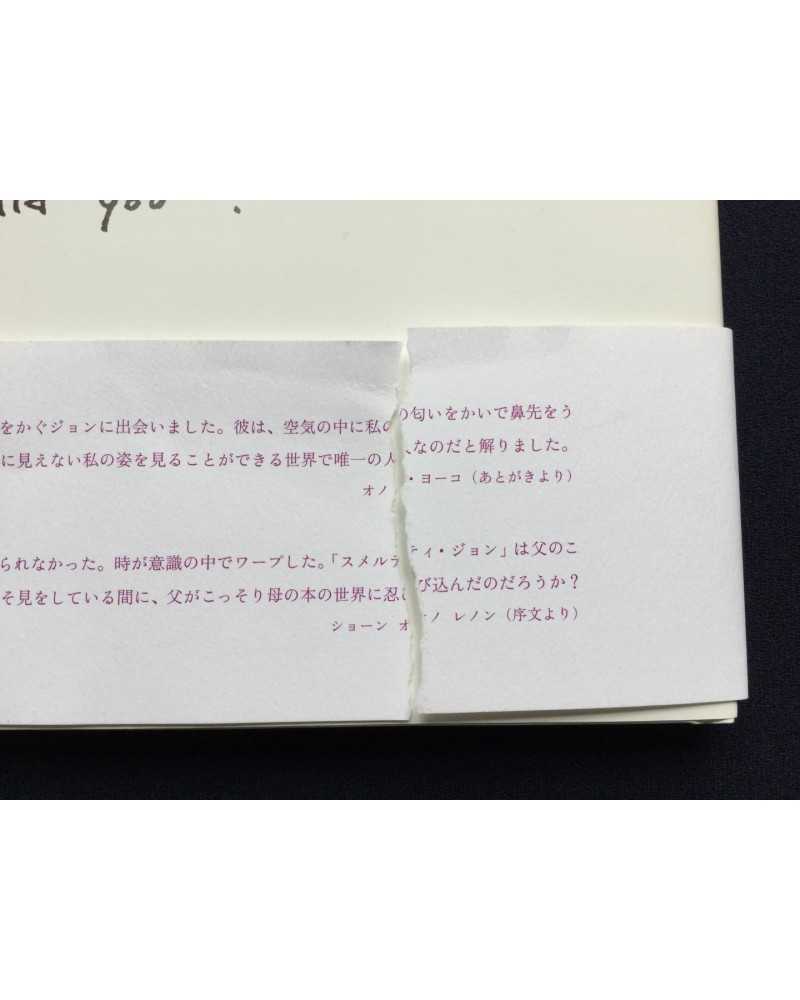 you .
をかぐジョンに出会いました。彼は、空気の中に私の匂いをかいで鼻先をう
に見えない私の姿を見ることができる世界で唯一の人なのだと解りました。
オノ・ヨーコ（あとがきより）
られなかった。時が意識の中でワープした。「スメルティ・ジョン」は父のこ
そ見をしている間に、父がこっそり母の本の世界に忍び込んだのだろうか？
ショーン オノ レノン（序文より）